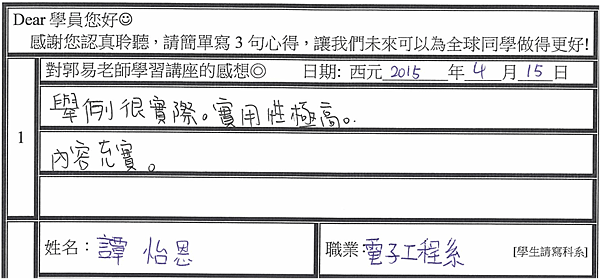 Dear 學員您好☺
感謝您認真聆聽，請簡單寫 3 句心得，讓我們未來可以為全球同學做得更好!
對郭易老師學習講座的感想◎ 日期: 西元 2015 年 4 月 15 日
1
舉例很實際。實用性極高。
內容充實。
姓名：譚怡恩 職業：電子工程系 [學生請寫科系]